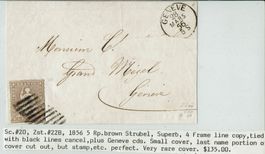 GENEVE
Monsieur C.
Grand Mézel
Genève
Sc.#20, Zst.#22B, 1856 5 Rp.brown Strubel, Superb, 4 Frame line copy,tied
with black lines cancel,plus Geneve cds. Small cover, last name portion o
cover cut out, but stamp,etc. perfect. Very rare cover. $135.00.